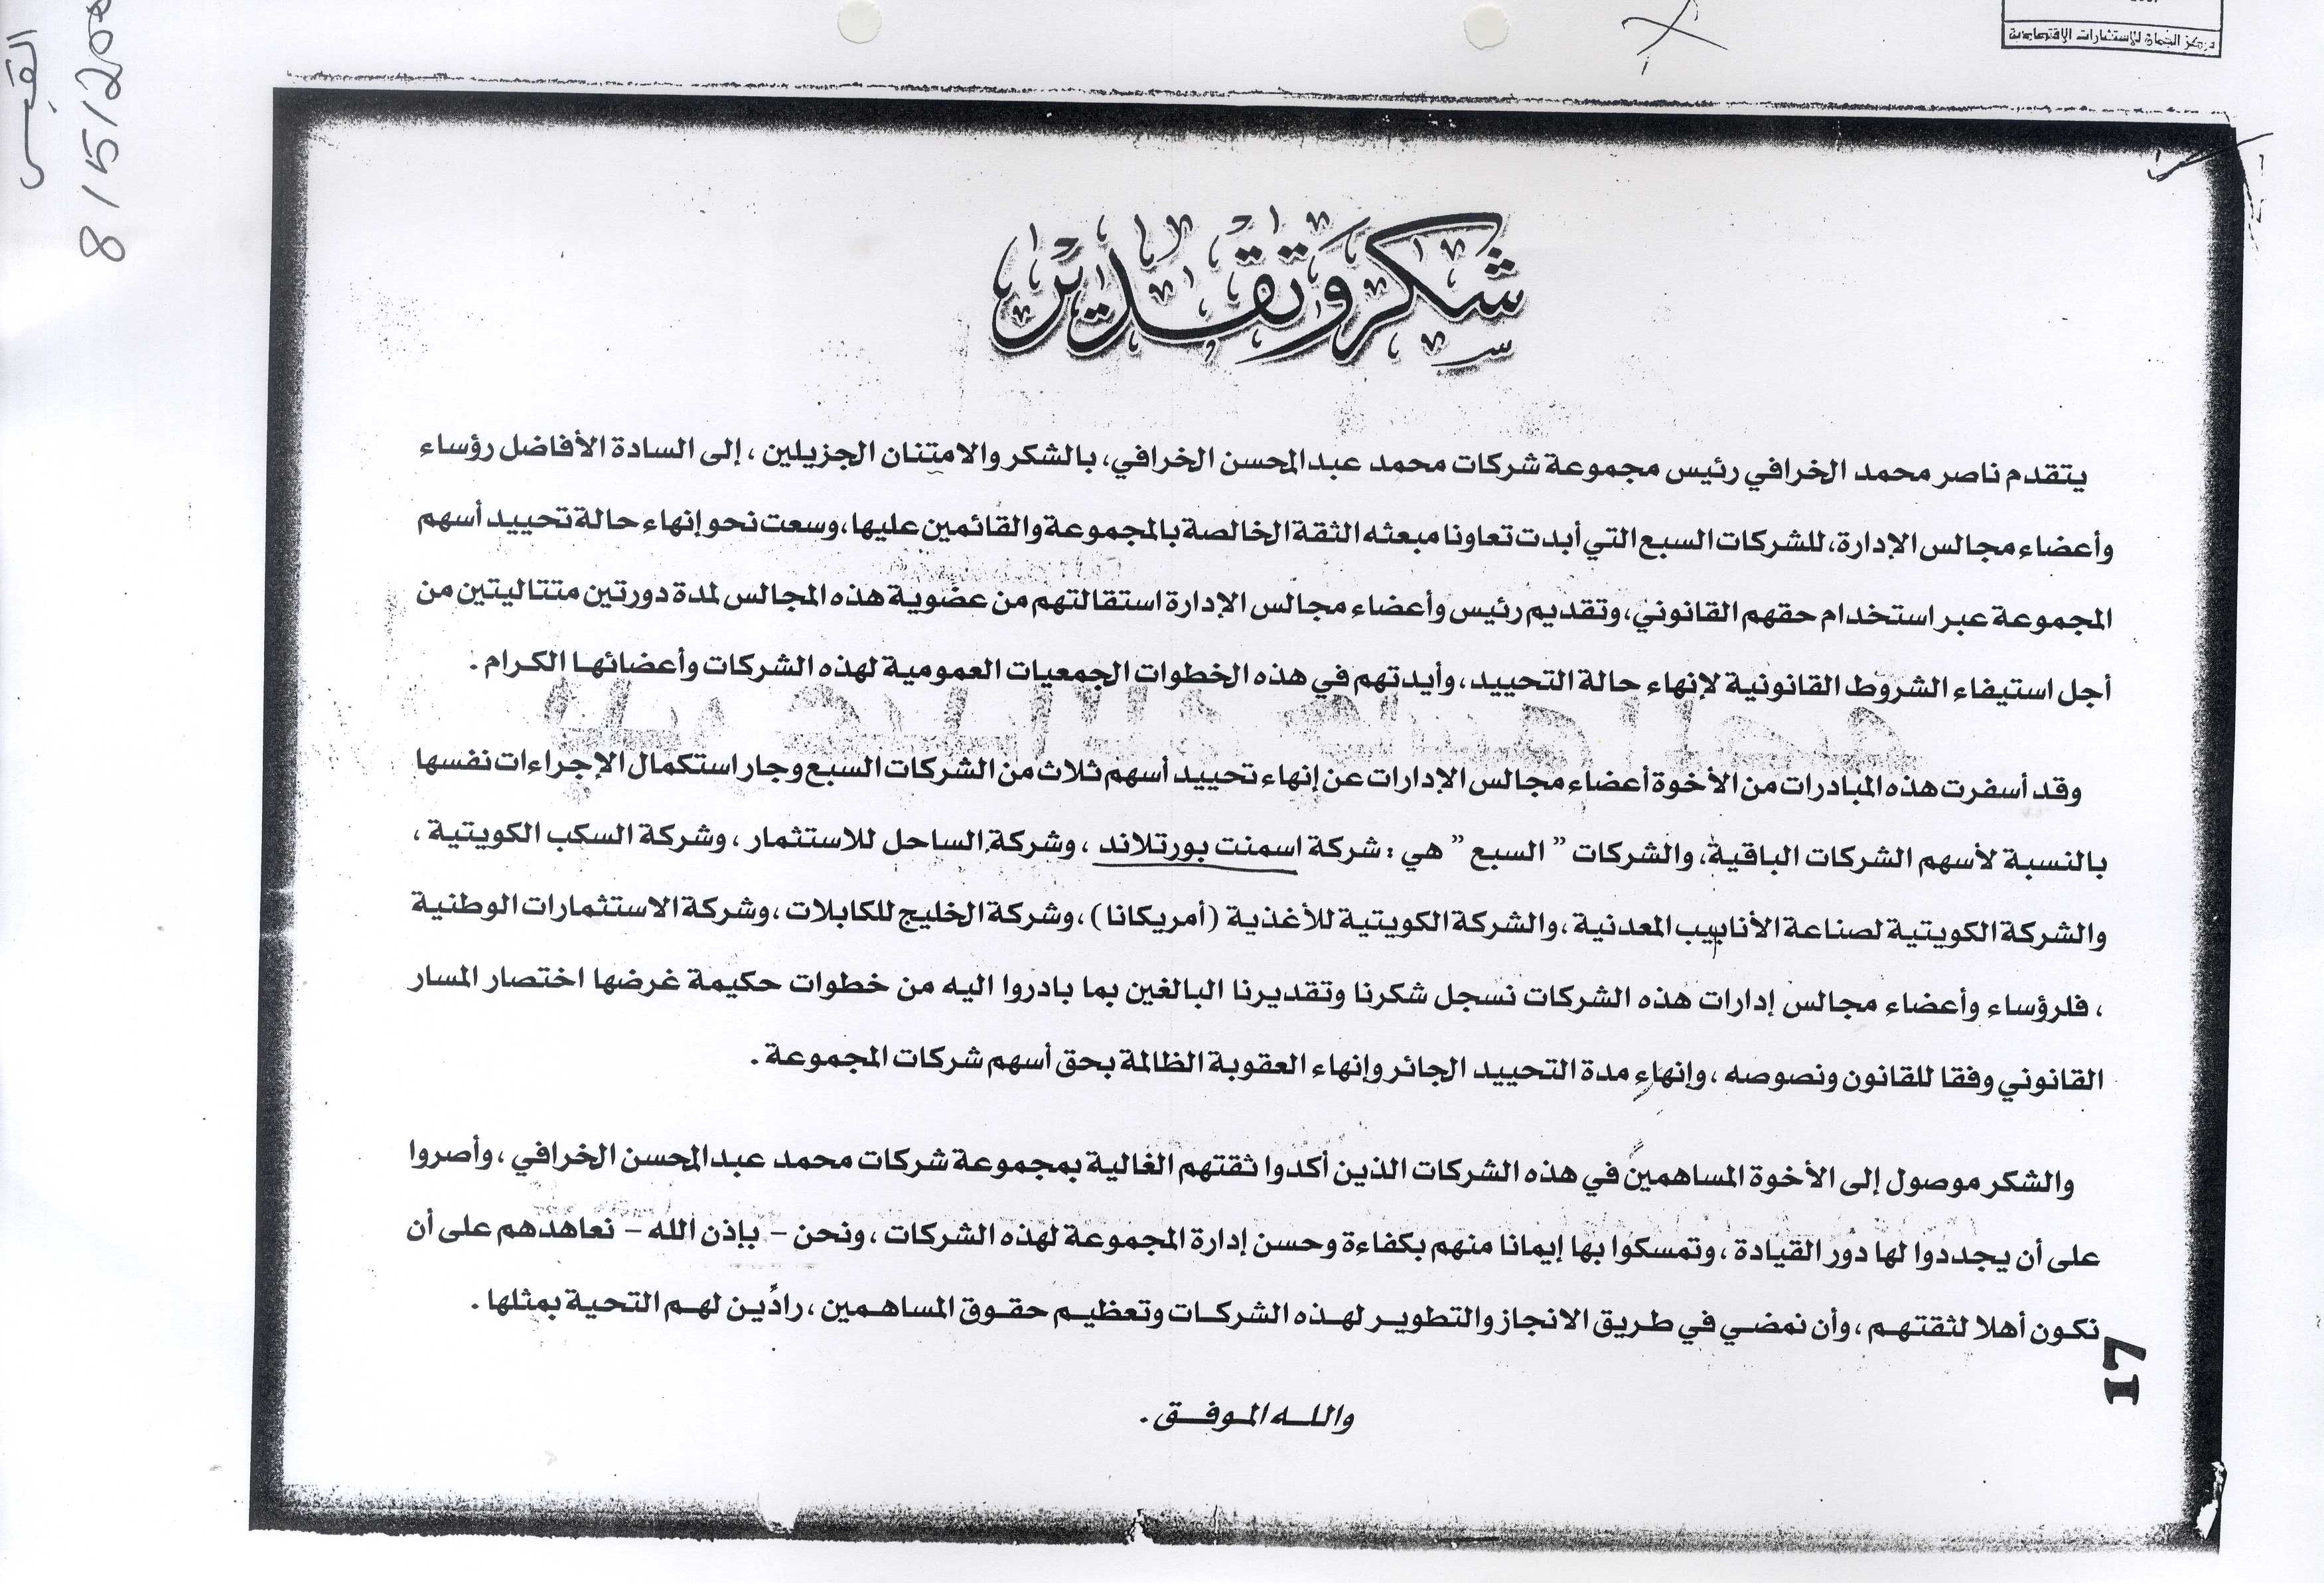 مركز الجمان للاستشارات الاقتصادية
القبس
شكر وتقدير
يتقدم ناصر محمد الخرافي رئيس مجموعة شركات محمد عبدالمحسن الخرافي، بالشكر والامتنان الجزيلين ، إلى السادة الأفاضل رؤساء
وأعضاء مجالس الإدارة، للشركات السبع التي أبدت تعاونا مبعثه الثقة الخالصة بالمجموعة والقائمين عليها، وسعت نحو إنهاء حالة تحييد أسهم
المجموعة عبر استخدام حقهم القانوني، وتقديم رئيس وأعضاء مجالس الإدارة استقالتهم من عضوية هذه المجالس لمدة دورتين متتاليتين من
أجل استيفاء الشروط القانونية لإنهاء حالة التحييد ، وأيدتهم في هذه الخطوات الجمعيات العمومية لهذه الشركات وأعضائها الكرام .
وقد أسفرت هذه المبادرات من الأخوة أعضاء مجالس الإدارات عن إنهاء تحييد أسهم ثلاث من الشركات السبع وجار استكمال الإجراءات نفسها
بالنسبة لأسهم الشركات الباقية، والشركات " السبع " هي : شركة اسمنت بورتلاند ، وشركة الساحل للاستثمار ، وشركة السكب الكويتية ،
والشركة الكويتية لصناعة الأنابيب المعدنية ، والشركة الكويتية للأغذية (أمريكانا) ، وشركة الخليج للكابلات ، وشركة الاستثمارات الوطنية
، فلرؤساء وأعضاء مجالس إدارات هذه الشركات نسجل شكرنا وتقديرنا البالغين بما بادروا اليه من خطوات حكيمة غرضها اختصار المسار
القانوني وفقا للقانون ونصوصه ، وإنهاء مدة التحييد الجائر وإنهاء العقوبة الظالمة بحق أسهم شركات المجموعة .
والشكر موصول إلى الأخوة المساهمين في هذه الشركات الذين أكدوا ثقتهم الغالية بمجموعة شركات محمد عبدالمحسن الخرافي ، وأصروا
على أن يجددوا لها دور القيادة ، وتمسكوا بها إيمانا منهم بكفاءة وحسن إدارة المجموعة لهذه الشركات ، ونحن - بإذن الله - نعاهدهم على أن
نكون أهلا لثقتهم ، وأن نمضي في طريق الانجاز والتطوير لهذه الشركات وتعظيم حقوق المساهمين ، رادّين لهم التحية بمثلها .
والله الموفق .
17